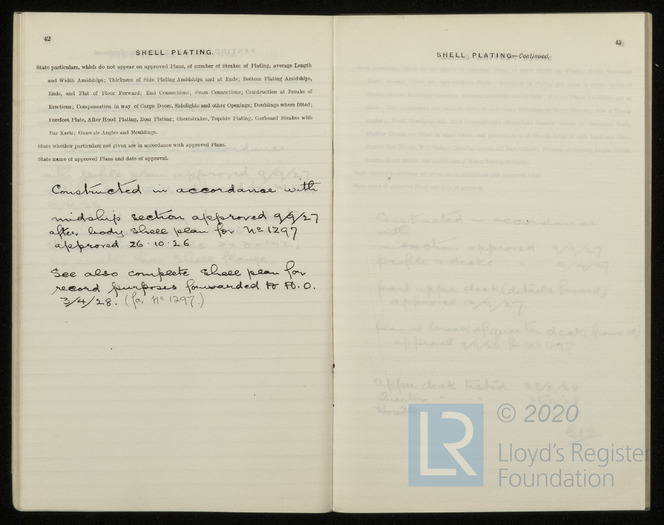 42
SHELL PLATING.
State particulars, which do not appear on approved Plans, of number of Strakes of Plating, average Length
and Width Amidships; Thickness of Side Plating Amidships and at Ends; Bottom Plating Amidships,
Ends, and Flat of Floor Forward; End Connections; Seam Connections; Construction at Breaks of
Erections; Compensation in way of Cargo Doors, Sidelights and other Openings; Doublings where fitted;
Forefoot Plate, After Hood Plating, Boss Plating; Sheerstrakes, Topside Plating, Garboard Strakes with
Bar Keels; Gunwale Angles and Mouldings.
State whether particulars not given are in accordance with approved Plans.
State name of approved Plans and date of approval.
Constructed in accordance with
midship section approved 9/9/27
after body shell plan for No 1297
approved 26.10.26
See also complete shell plan for
record purposes forwarded to H.O.
3/4/28. (for No 1297.)
43
SHELL PLATING—Continued.
© 2020
LR
Lloyd's Register
Foundation